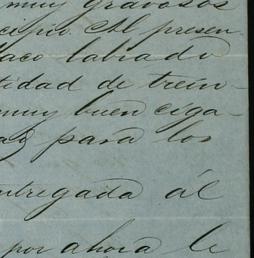 muy gravosos
cipio. Al presen
baco labrado
tidad de trein-
muy buen ciga-
para los
ntregada ál
por ahora le